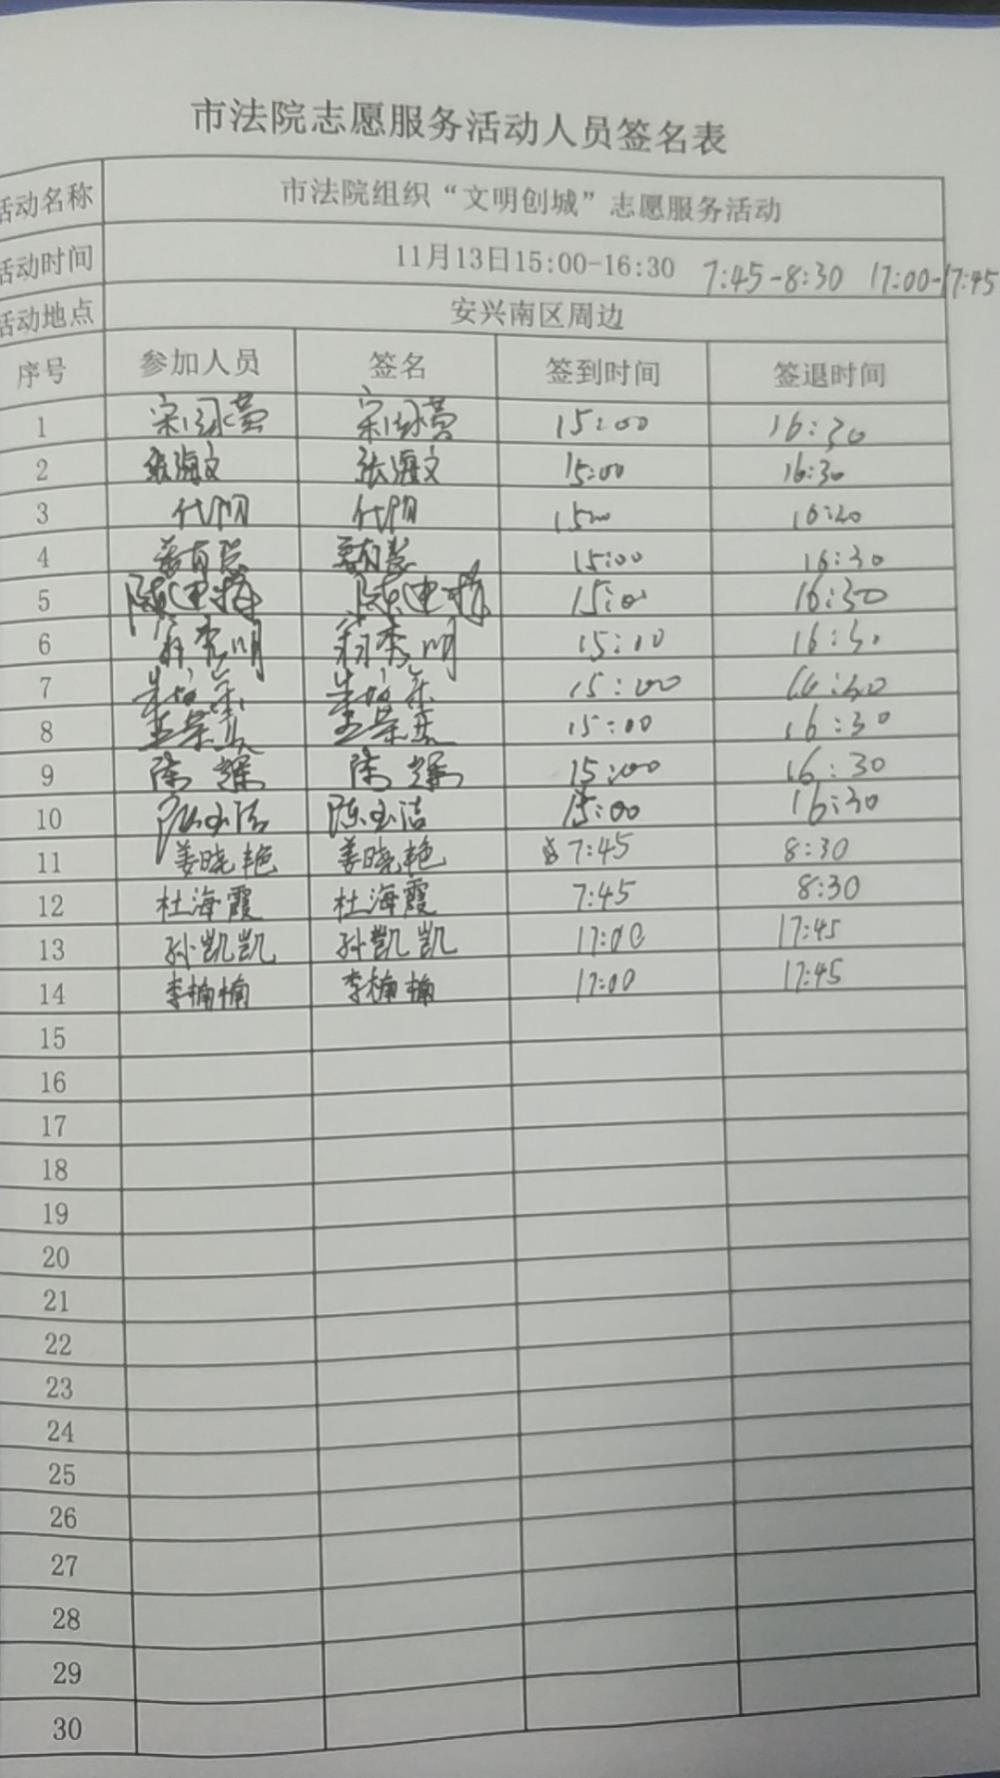 市法院志愿服务活动人员签名表
活动名称 市法院组织“文明创城”志愿服务活动
活动时间 11月13日15:00-16:30 7:45-8:30 17:00-17:45
活动地点 安兴南区周边
序号 参加人员 签名 签到时间 签退时间
1 15:00 16:30
2 张海文 张海文 15:00 16:30
3 代明 代明 1500 16:30
4 15:00 16:30
5 15:00 16:30
6 15:00 16:30
7 15:00 16:30
8 15:00 16:30
9 陈辉 陈辉 15:00 16:30
10 陈玉洁 陈玉洁 15:00 16:30
11 姜晓艳 姜晓艳 7:45 8:30
12 杜海霞 杜海霞 7:45 8:30
13 孙凯凯 孙凯凯 17:00 17:45
14 李楠楠 李楠楠 17:00 17:45
15
16
17
18
19
20
21
22
23
24
25
26
27
28
29
30